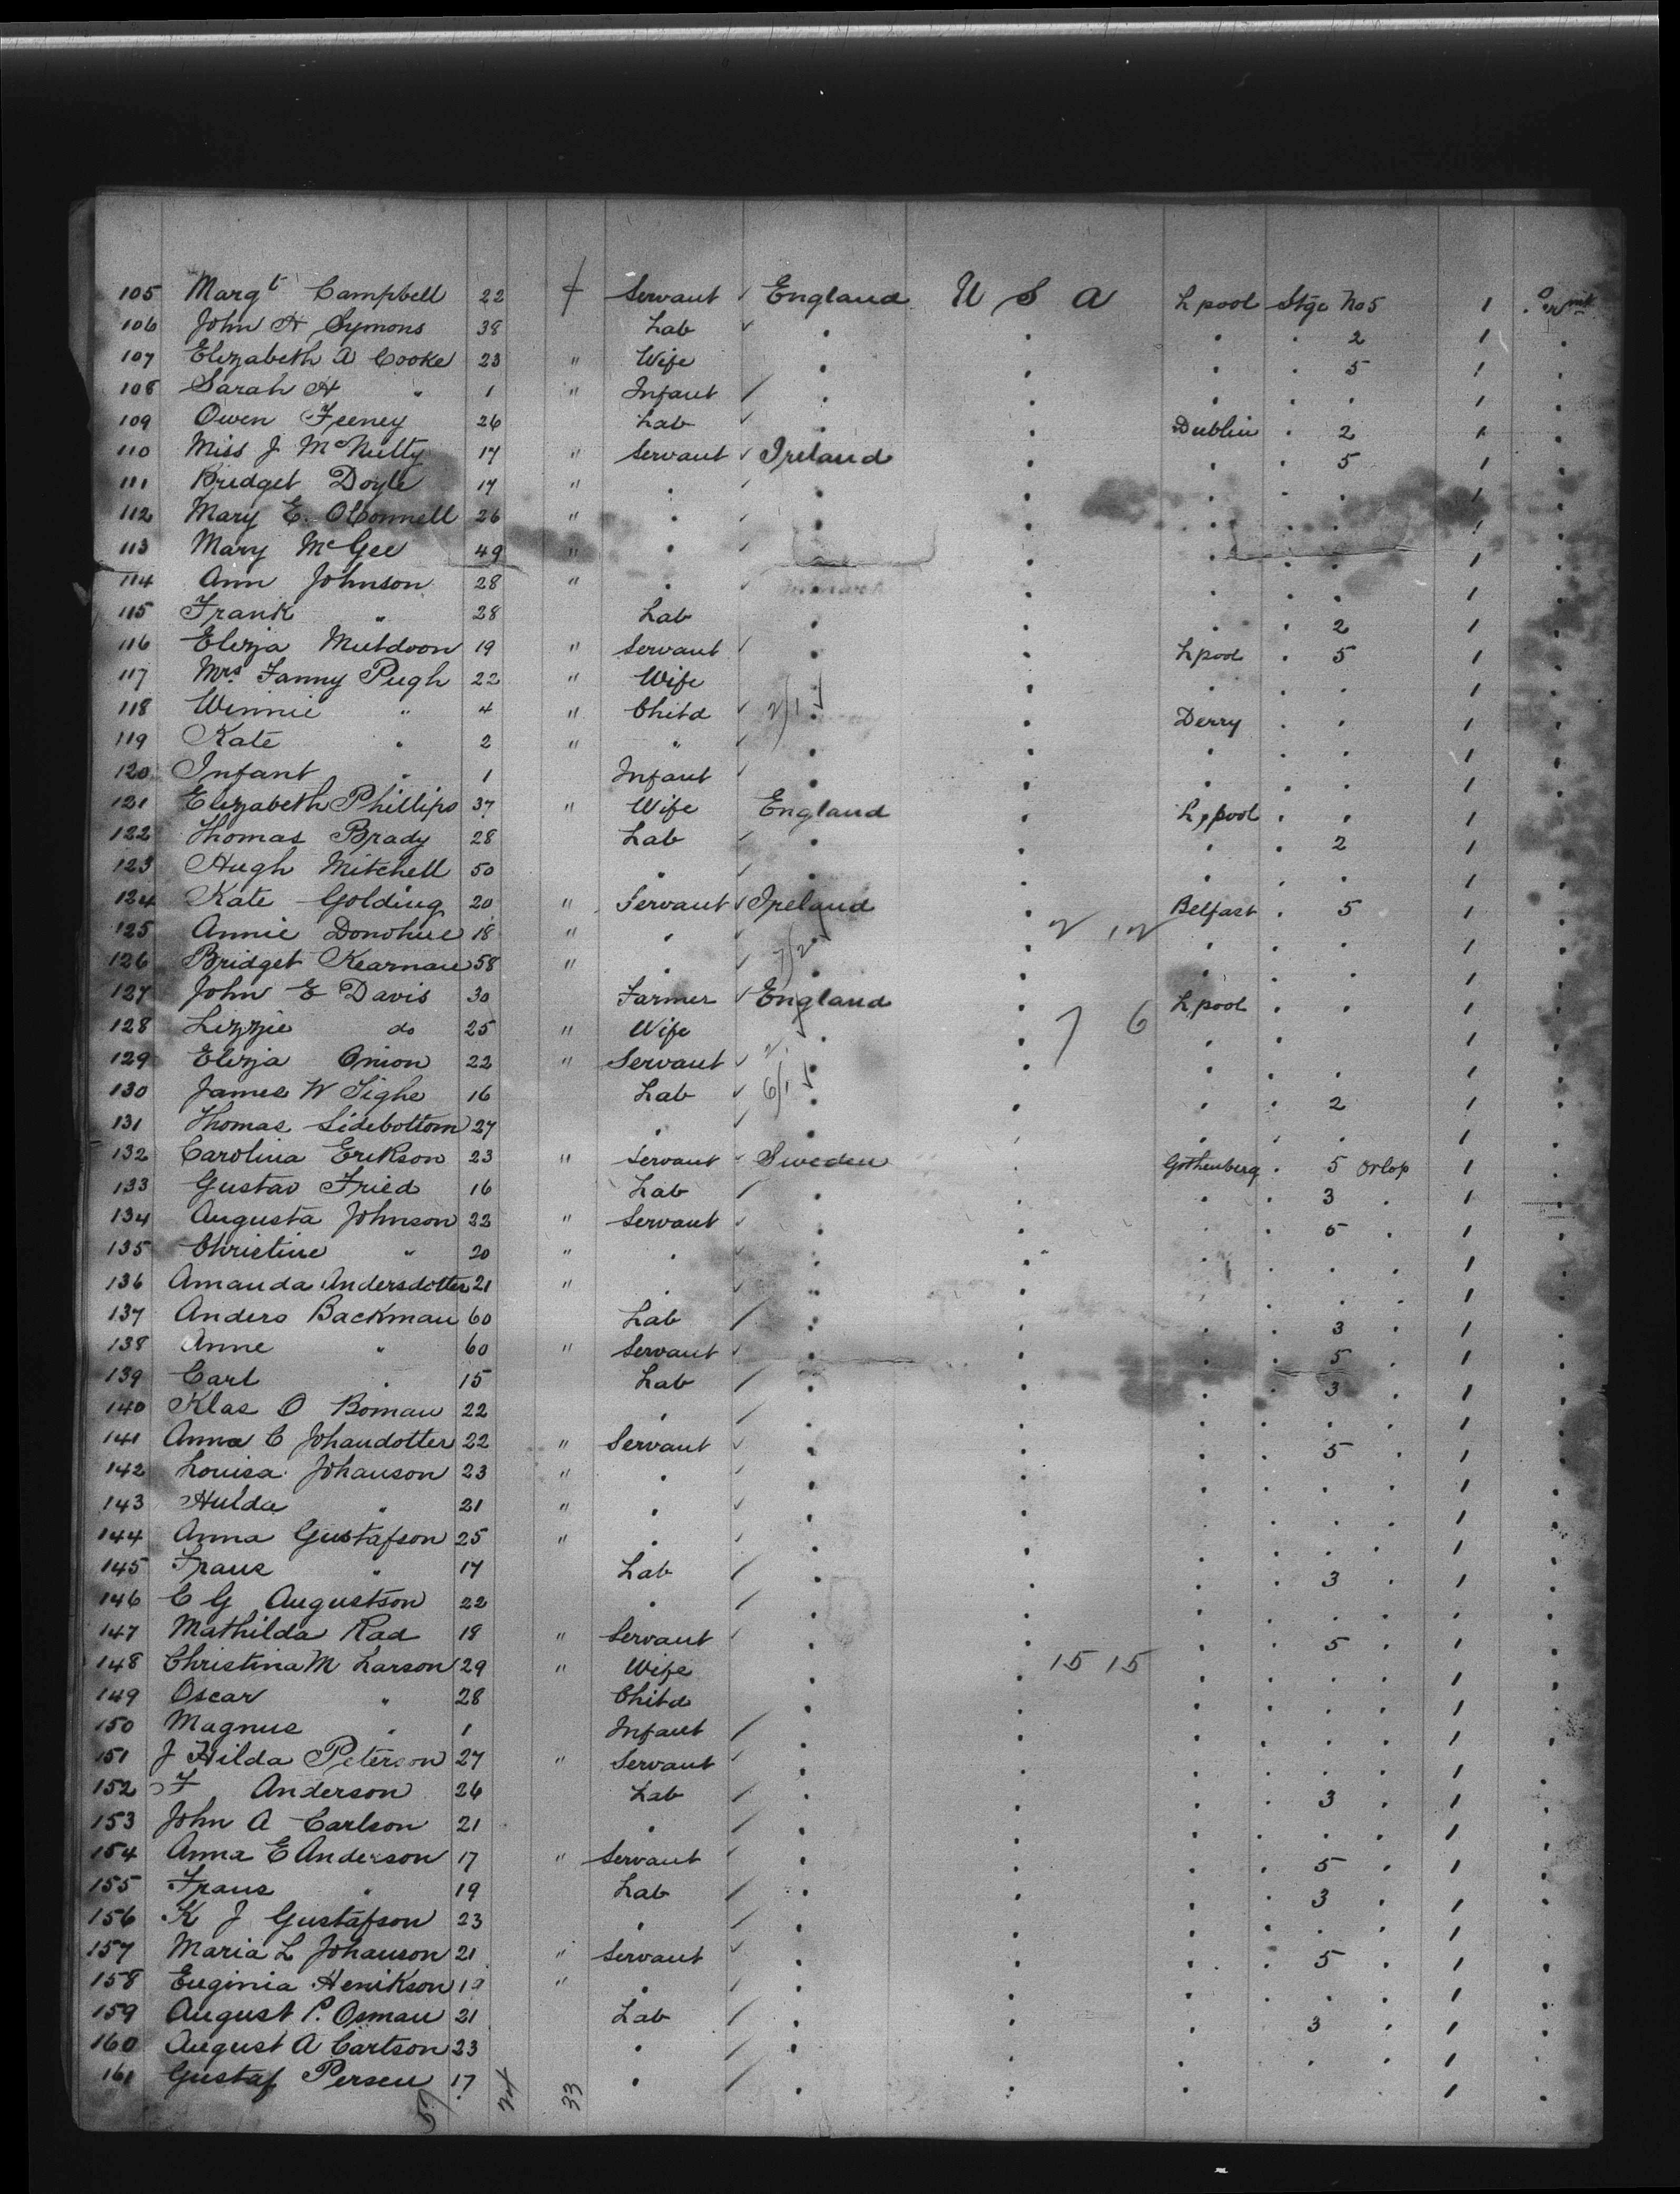 105 Margt Campbell 22 + Servant ✓ England U S A Lpool Stge No 5 1
106 John H Symons 38 Lab ✓ . . . . 2 1 .
107 Elizabeth A Cooke 23 " Wife . . . . 5 1 .
108 Sarah H " 1 " Infant / . . . . . 1 .
109 Owen Feeney 26 Lab ✓ . . Dublin . 2 1 .
110 Miss J McNulty 17 " Servant ✓ Ireland . . . 5 1 .
111 Bridget Doyle 17 " . ✓ . . . . . 1
112 Mary E. OConnell 26 " . ✓ . . . . . 1
113 Mary McGee 49 " . ✓ . . . . 1
114 Ann Johnson 28 " . ✓ . . . . 1 .
115 Frank " 28 Lab . . . . 2 1 .
116 Eliza Muldoon 19 " Servant ✓ . . Lpool . 5 1 .
117 Mrs Fanny Pugh 22 " Wife . . . . . 1 .
118 Winnie " 4 " Child ✓ 2/1 . . Derry . . 1 .
119 Kate " 2 " " ✓ . . . . . 1 .
120 Infant " 1 Infant ✓ . . . . . 1 .
121 Elizabeth Phillips 37 " Wife England . L,pool . . 1 .
122 Thomas Brady 28 Lab ✓ . . . . 2 1 .
123 Hugh Mitchell 50 . ✓ . . . . . 1 .
124 Kate Golding 20 " Servant ✓ Ireland . Belfast . 5 1 .
125 Annie Donohue 18 " . ✓ . . 2 12 . . . 1 .
126 Bridget Kearnan 58 " . ✓ . . . . . 1 .
127 John E Davis 30 Farmer ✓ England . Lpool . . 1 .
128 Lizzie do 25 " Wife . . 7 6 . . 1 .
129 Eliza Onion 22 " Servant ✓ . . . . . 1 .
130 James W Tighe 16 Lab ✓ 6/1 . . . . 2 1 .
131 Thomas Sidebottom 27 . ✓ . . . . . 1 .
132 Carolina Erikson 23 " Servant ✓ Sweden . Gothenberg . 5 orlop 1 .
133 Gustav Fried 16 Lab / . . . . 3 . 1 .
134 Augusta Johnson 22 " Servant ✓ . . . . 5 . 1 .
135 Christine " 20 " . ✓ . . . . . . 1 .
136 Amanda Andersdotter 21 " . ✓ . . . . . . 1
137 Anders Backman 60 Lab / . . . . 3 . 1 .
138 Anne " 60 " Servant ✓ . . . . 5 . 1 .
139 Carl . 15 Lab / . . . . 3 . 1 .
140 Klas O Boman 22 . / . . . . . . 1 .
141 Anna C Johandotter 22 " Servant ✓ . . . . 5 . 1 .
142 Louisa Johanson 23 " . ✓ . . . . . . 1 .
143 Hulda " 21 " . ✓ . . . . . . 1 .
144 Anna Gustafson 25 " . ✓ . . . . . . 1 .
145 Frans " 17 Lab / . . . . 3 . 1 .
146 C G Augustson 22 . / . . . . . . 1 .
147 Mathilda Rad 18 " Servant ✓ . . . . 5 . 1 .
148 Christina M Larson 29 " Wife . . 15 15 . . . . 1 .
149 Oscar " 28 Child . . . . . . 1 .
150 Magnus " 1 Infant / . . . . . . 1 .
151 J Hilda Peterson 27 " Servant ✓ . . . . . . 1 .
152 F Anderson 26 Lab / . . . . 3 . 1 .
153 John A Carlson 21 . / . . . . . . 1 .
154 Anna E Anderson 17 " Servant ✓ . . . . 5 . 1 .
155 Frans " 19 Lab / . . . . 3 . 1 .
156 K J Gustafson 23 . / . . . . . . 1 .
157 Maria L Johanson 21 " Servant ✓ . . . . 5 . 1 .
158 Euginia Henikson " . / . . . . . . 1 .
159 August P. Osman 21 Lab / . . . . 3 . 1 .
160 August A Carlson 23 . / . . . . . . 1 .
161 Gustaf Persen 17 . / . . . 1 .
57 24 33